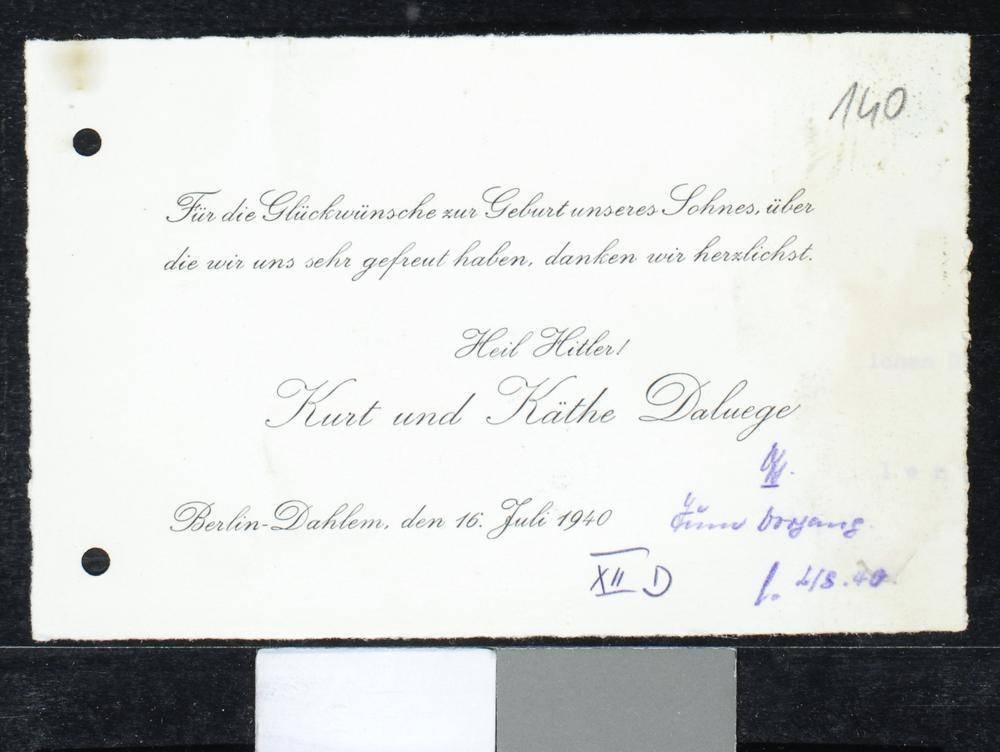 140
Für die Glückwünsche zur Geburt unseres Sohnes, über
die wir uns sehr gefreut haben, danken wir herzlichst.
Heil Hitler!
Kurt und Käthe Daluege
Berlin-Dahlem, den 16. Juli 1940
Zum Vorgang
XII D